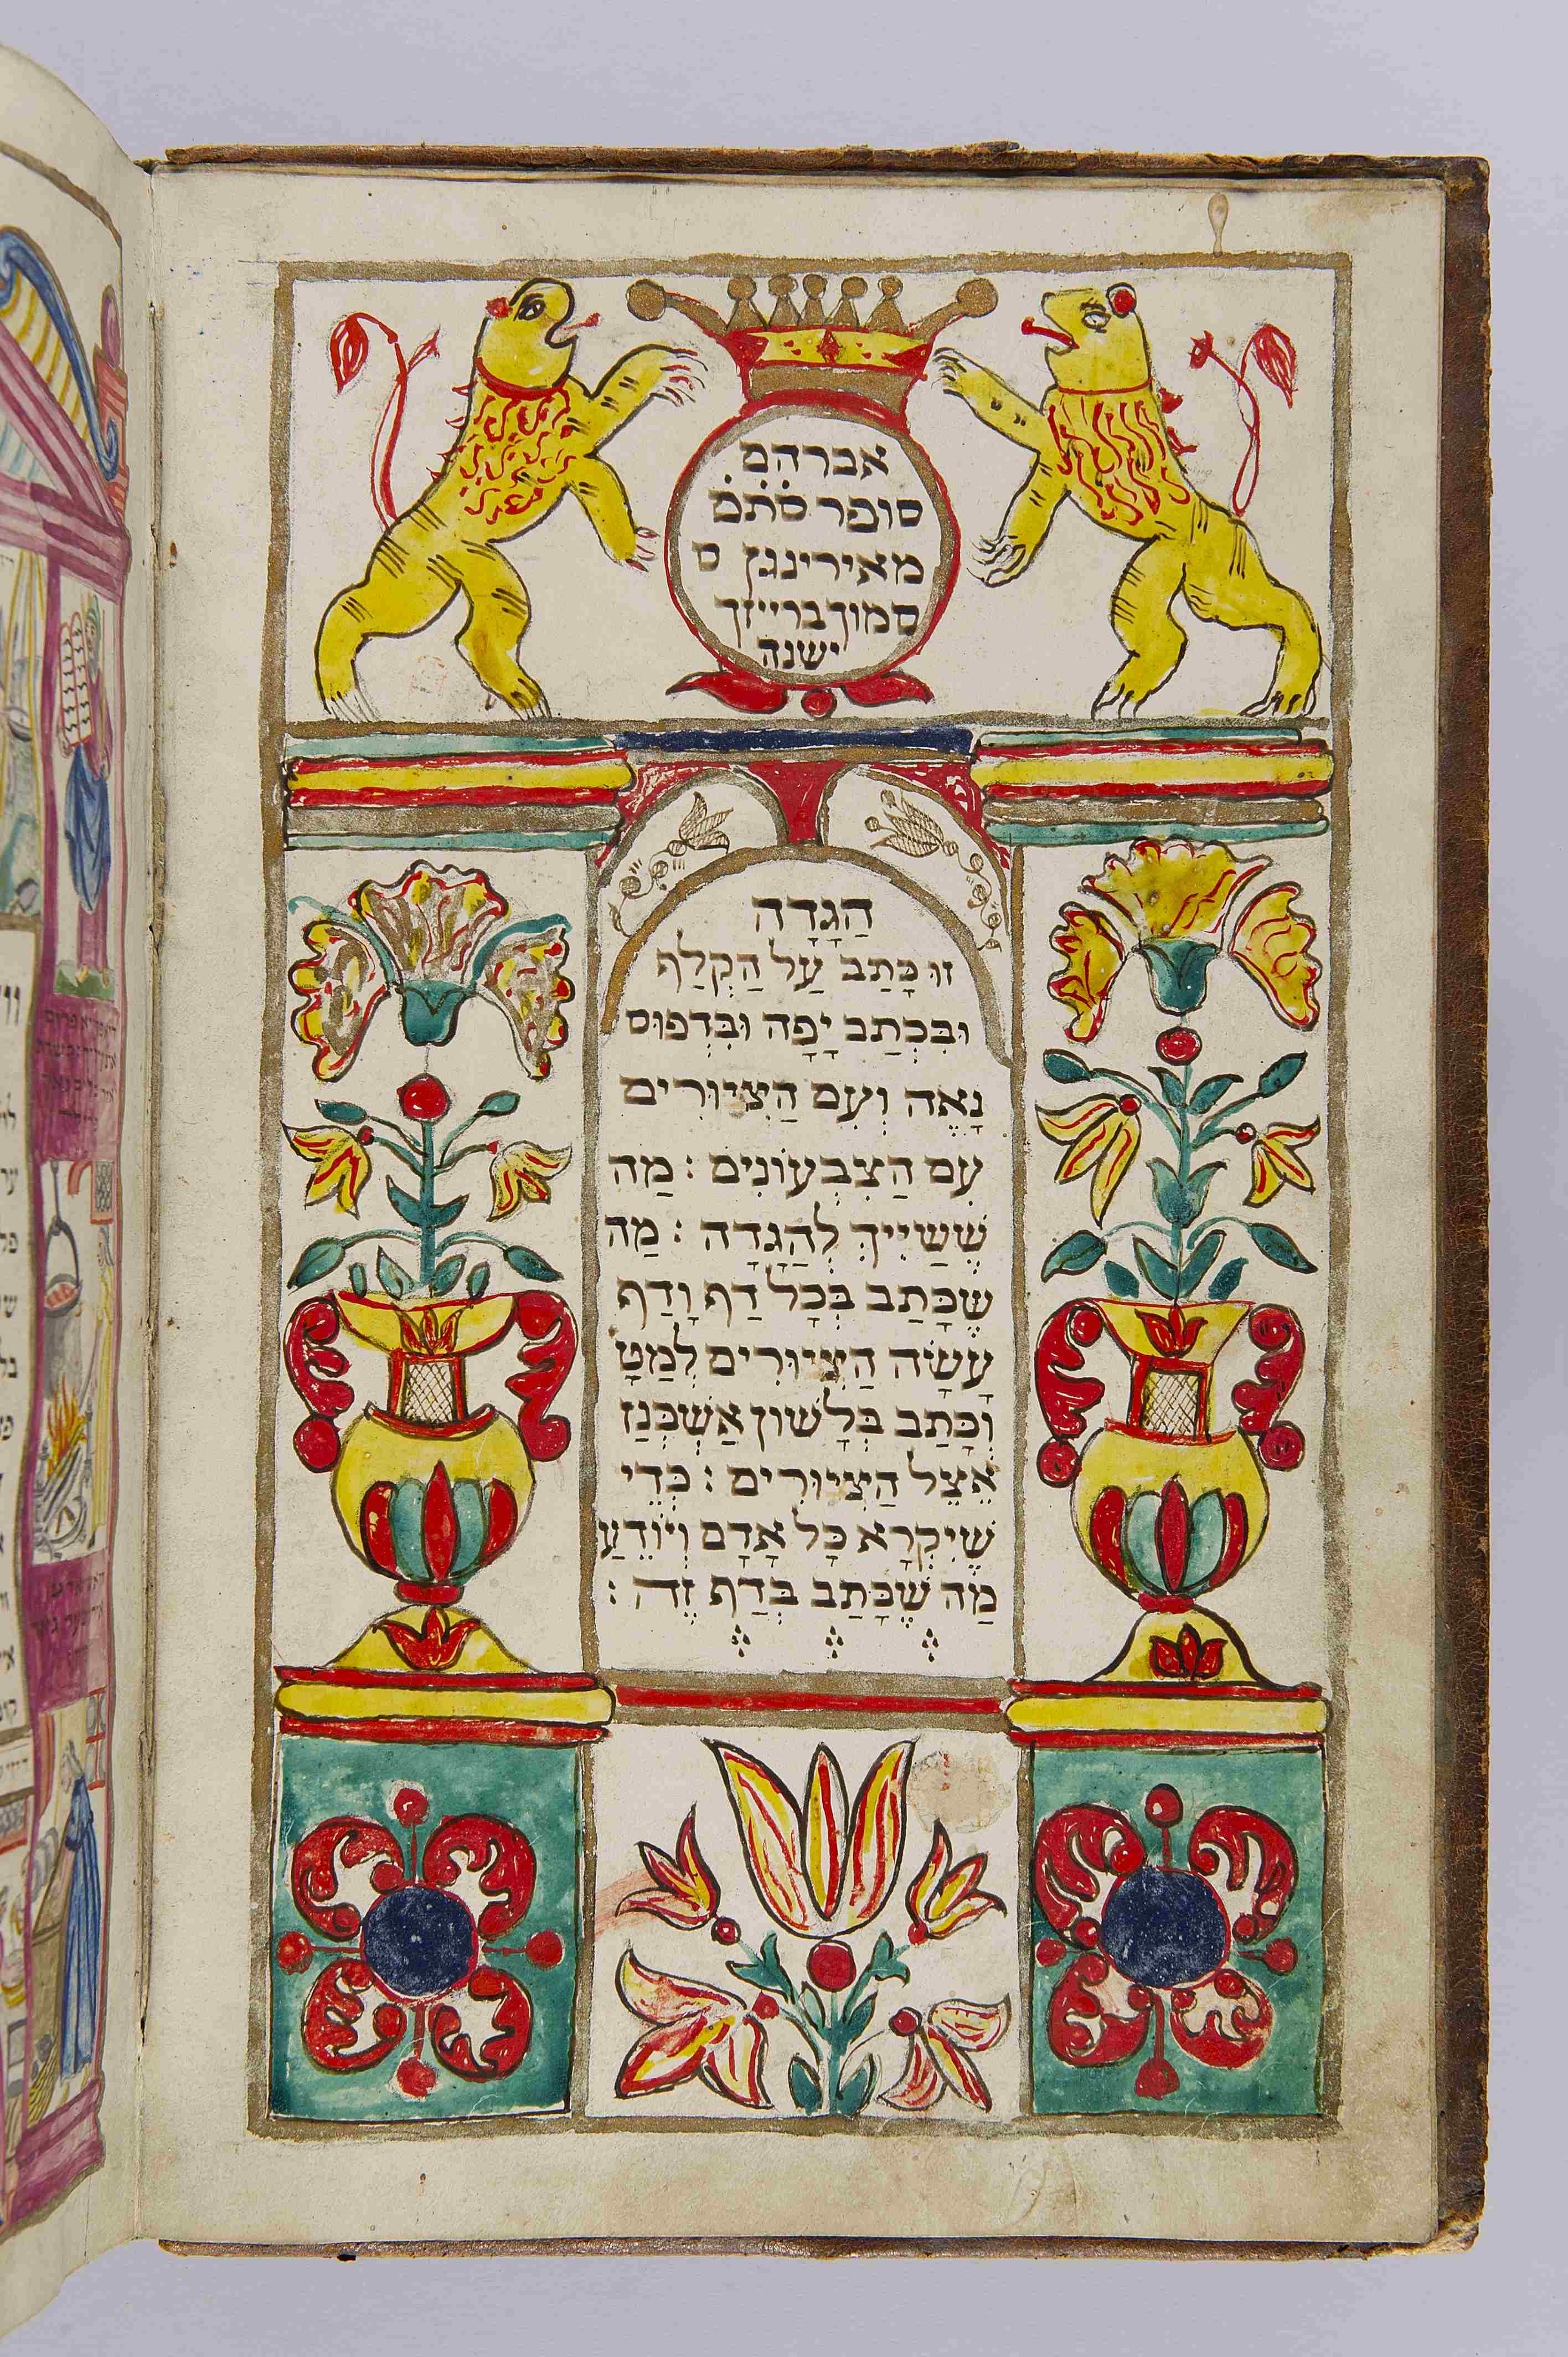 אברהם
סופר סתם
מאירינגן ס
סמוך ברייזך
ישנה
הַגָּדָה
זוּ כָּתַב עַל הַקְלַף
וּבִּכְתַב יָפָה וּבִּדְפוּס
נָאֶה וְעִם הַצִיּוּרִים
עִם הַצִבְעוֹנִים : מַה
שֶׁשַׁיֵיךְ לְהַגָּדָה : מַה
שֶׁכָּתַב בְּכָל דַף וָדַף
עָשָׂה הַצִיּוּרִים לְמַטָּ
וְכָּתַב בְּלָשׁוֹן אַשְׁכְּנַז
אֵצֶל הַצִיּוּרִים : כְּדֵי
שֶׁיִקְרָא כָּל אָדָם וְיוֹדֵעַ
מַה שֶׁכָּתַב בְּדַף זֶה :